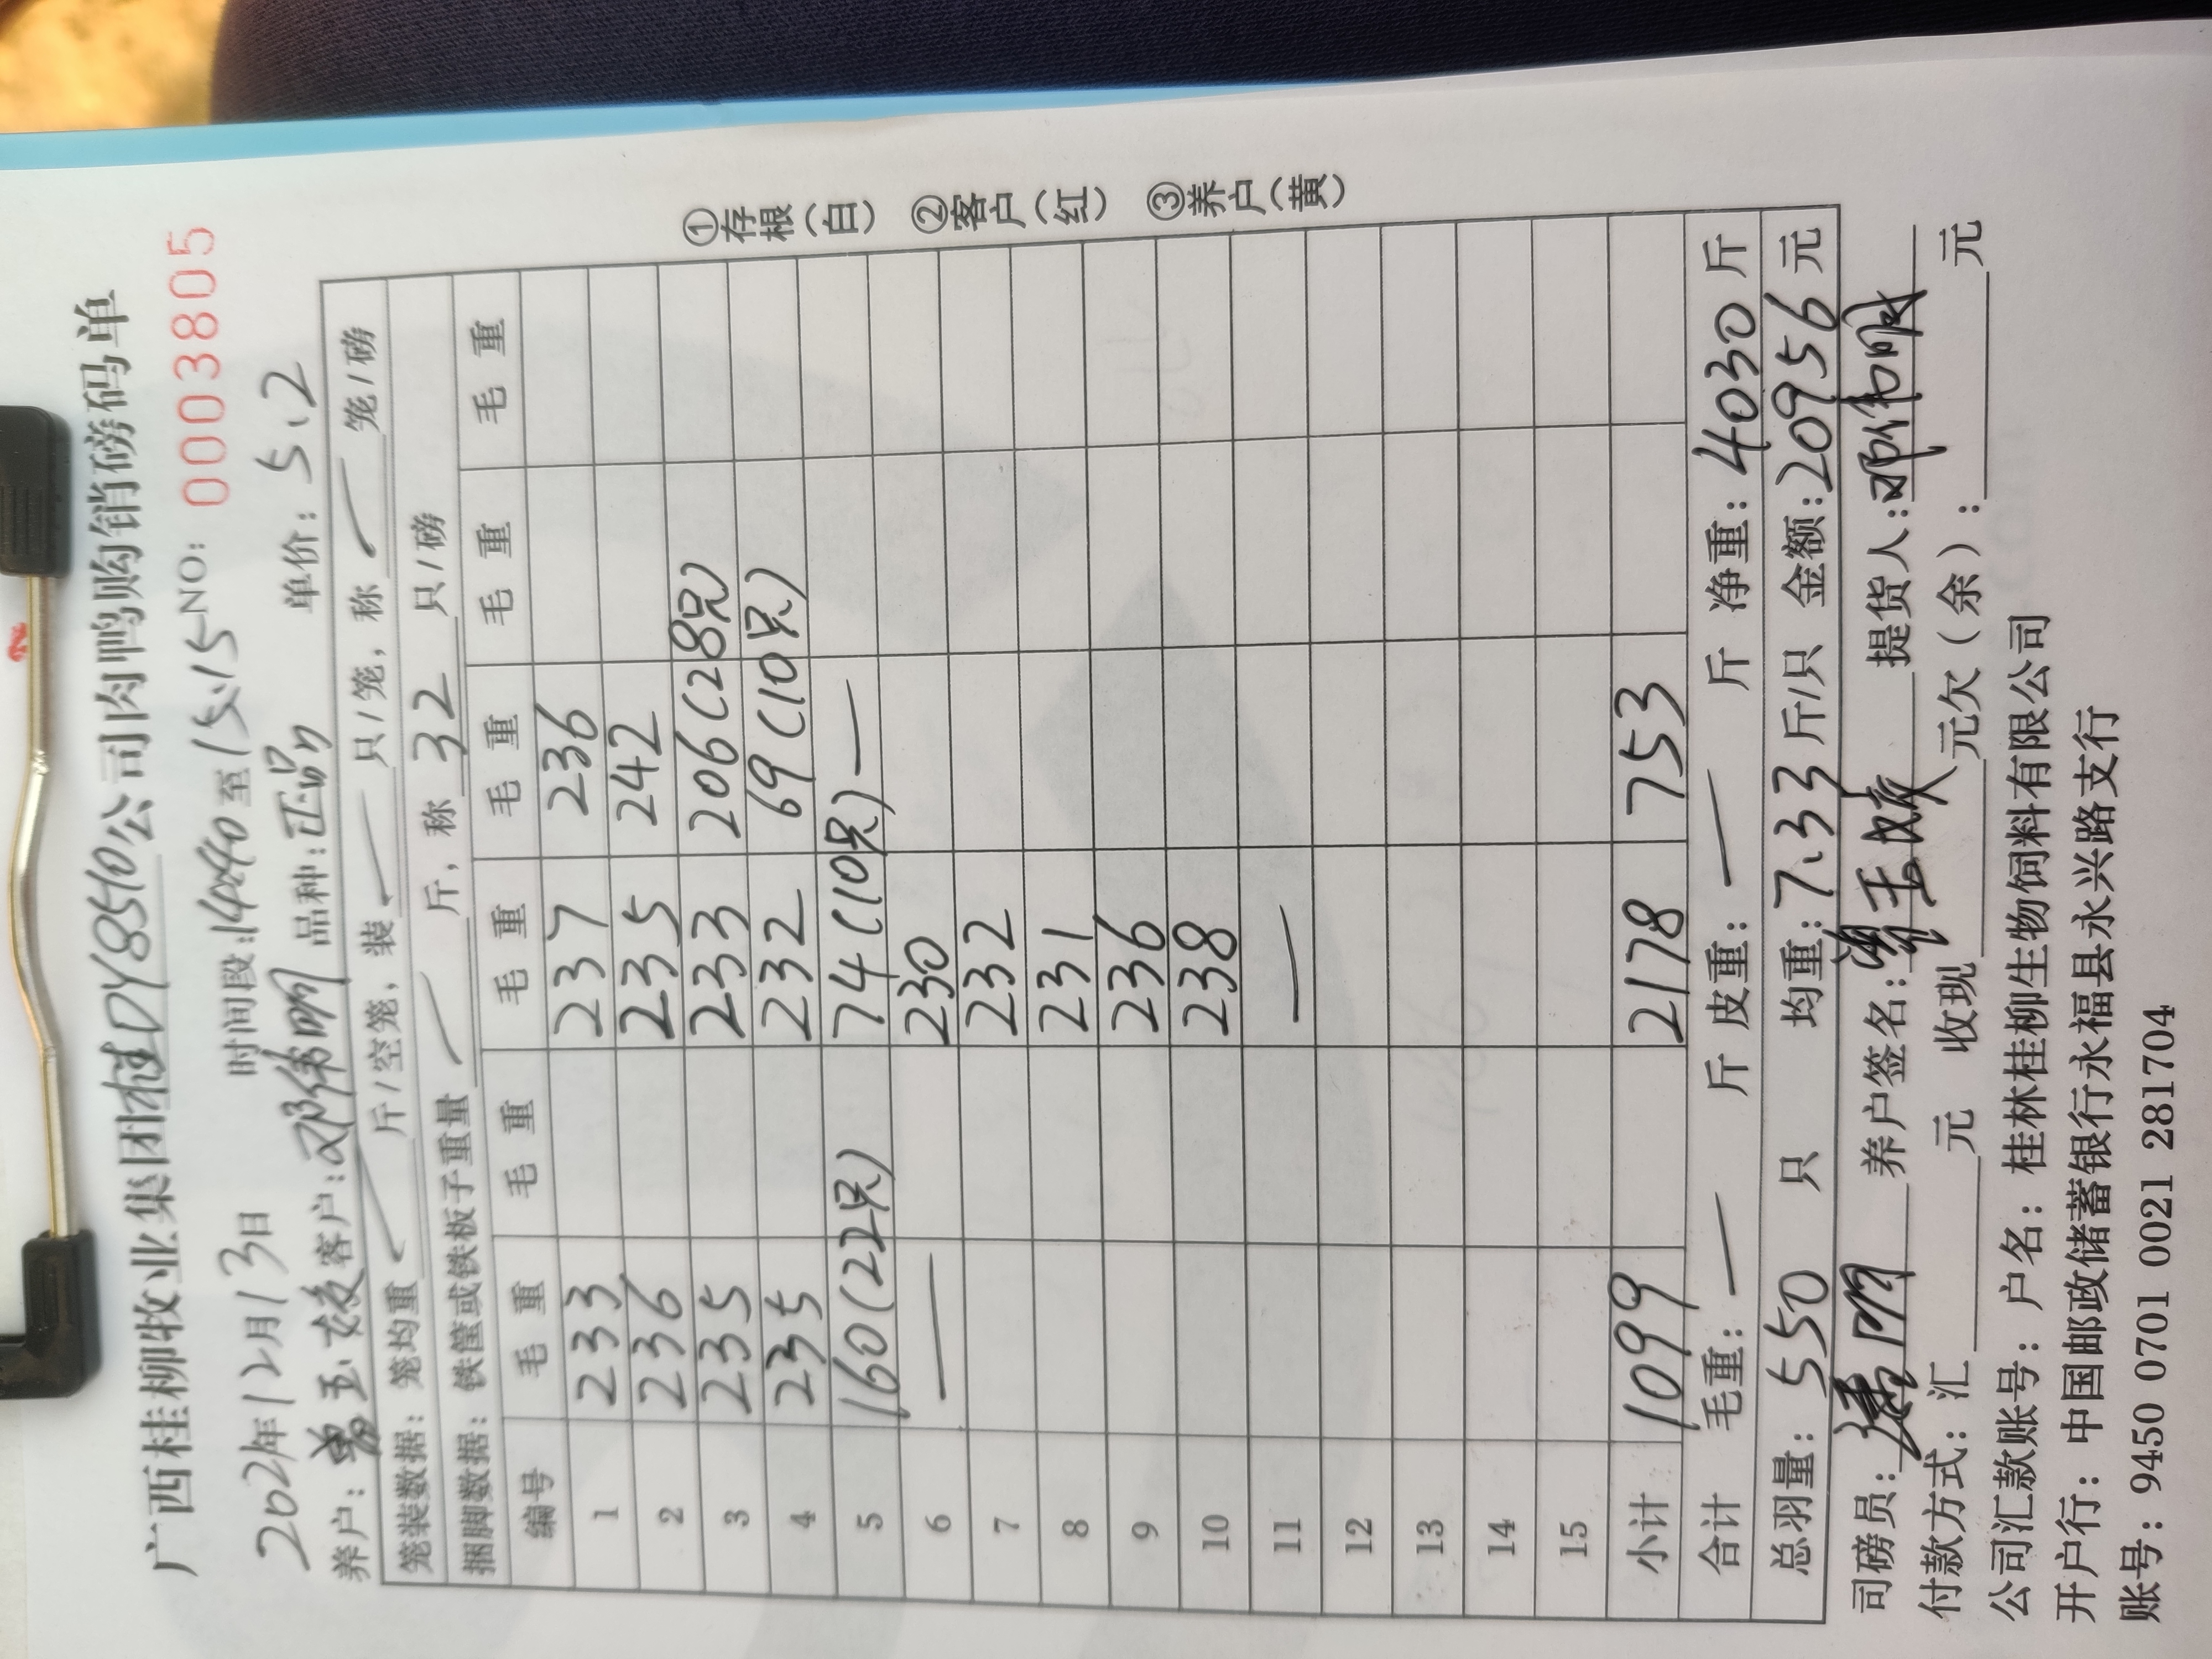 广西桂柳牧业集团桂DY8510公司肉鸭购销磅码单
2021年12月13日 时间段:14:40至15:15 NO: 0003805
养户: 客户: 品种:正品 单价: 5.2
笼装数据: 笼均重 斤/空笼, 装 只/笼, 称 笼/磅
捆脚数据: 铁筐或铁板子重量 斤, 称 32 只/磅
编号 毛重 毛重 毛重 毛重 毛重 毛重
1 233 237 236
2 236 235 242
3 235 233 206(28只)
4 235 232 69(10只)
5 160(22只) 74(10只) —
6 — 230
7 232
8 231
9 236
10 238
11 —
12
13
14
15
小计 1099 2178 753
合计 毛重: — 斤 皮重: — 斤 净重: 4030 斤
总羽量: 550 只 均重: 7.33 斤/只 金额: 20956 元
司磅员: 养户签名: 提货人:
付款方式: 汇 元 收现 元欠(余): 元
公司汇款账号: 户名: 桂林桂柳生物饲料有限公司
开户行: 中国邮政储蓄银行永福县永兴路支行
账号: 9450 0701 0021 281704
①存根(白) ②客户(红) ③养户(黄)